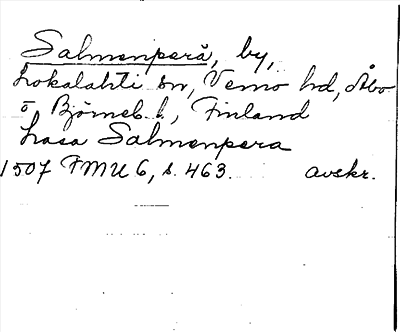 Salmenperä, by,
Lokalahti sn, Vemo hd, Åbo
o Björneb. l., Finland
Lasa Salmenpera
1507 FMU 6, s. 463. avskr.